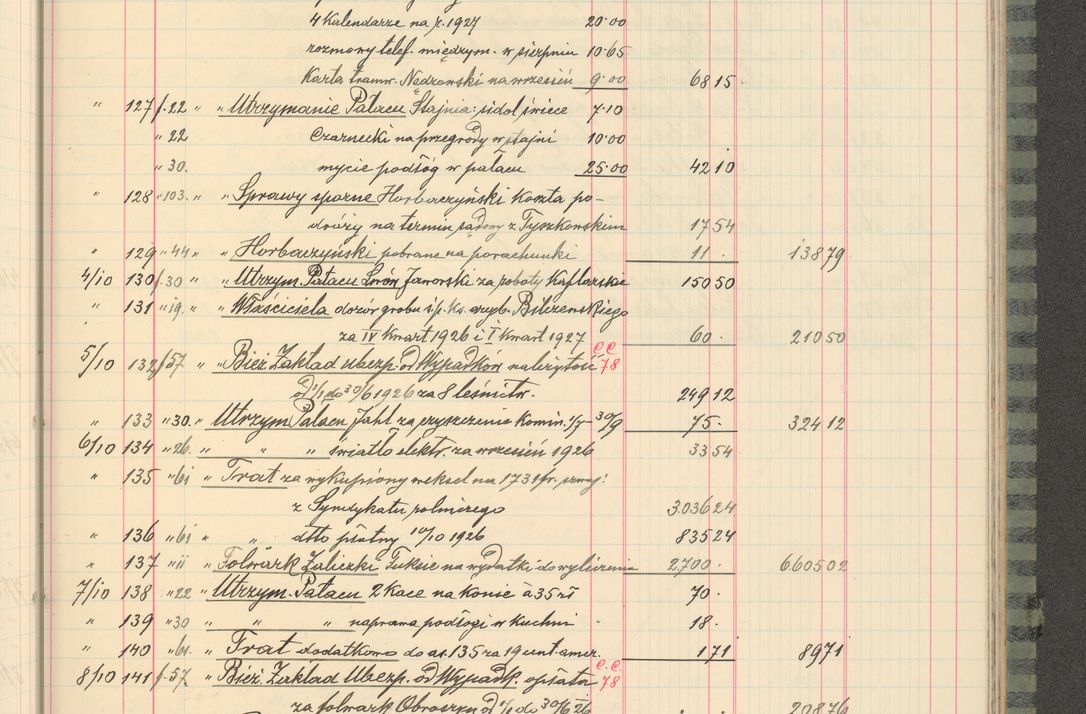 4 Kalendarze na r. 1927 20·00
rozmowy telef. międzym. w sierpniu 10·65
Karta tramw. Nedzowski na wrzesień 9·00 68 15
" 127 f. 22 " " Utrzymanie Pałacu Stajnia: sidol świece 7·10
" 22 Czarnecki na przegrody w stajni 10·00
" 30. mycie podłóg w pałacu 25·00 42 10
" 128 " 103. " " Sprawy sporne Horbaczyński Koszta po-
dróży na termin sądowy z Tyszkowskim 17 54
" 129 " 44 " " Horbaczyński pobrane na porachunki 11 . 138 79
4/10 130 f. 30 " " Utrzym. Pałacu Lwów Jaworski za roboty Kaflarskie 150 50
" 131 " 19. " " Właściciela dozór grobu ś.p. ks. arcyb. Bilczewskiego
za IV Kwart 1926 i I Kwart 1927 60 . 210 50
5/10 132 f 57 " " Bież. Zakład ubezp. od Wypadków należytość C.C 78
od 1/1 do 30/6 1926 za 8 leśnictw. 249 12
" 133 " 30. " Utrzym Pałacu Jahl za czyszczenie Komin. 30/9 75 . 324 12
6/10 134 " 26. " " " światło elektr. za wrzesień 1926 33 54
" 135 " 61 " Trat za wykupiony weksel na 1731 fr. szwaj:
z Syndykatu rolniczego 3.036 24
" 136 " 61 " " dtto płatny 10/10 1926 835 24
" 137 " 11 " Folwark Zaliczki Fuksie na wydatki do wyliczenia 2.700 . 6605 02
7/10 138 " 22 " Utrzym. Pałacu 2 Koce na Konie à 35 zł 70 .
" 139 " 30 " " " naprawa podłogi w Kuchni 18 .
" 140 " 61. " Trat dodatkowo do as. 135 za 19 cent. amer. 1 71 89 71
8/10 141 f. 57. " Bież. Zakład Ubezp. od Wypadk. opłata C.C. 78
za folwark Obroszyn od 1/1 do 30/6 26 208 76